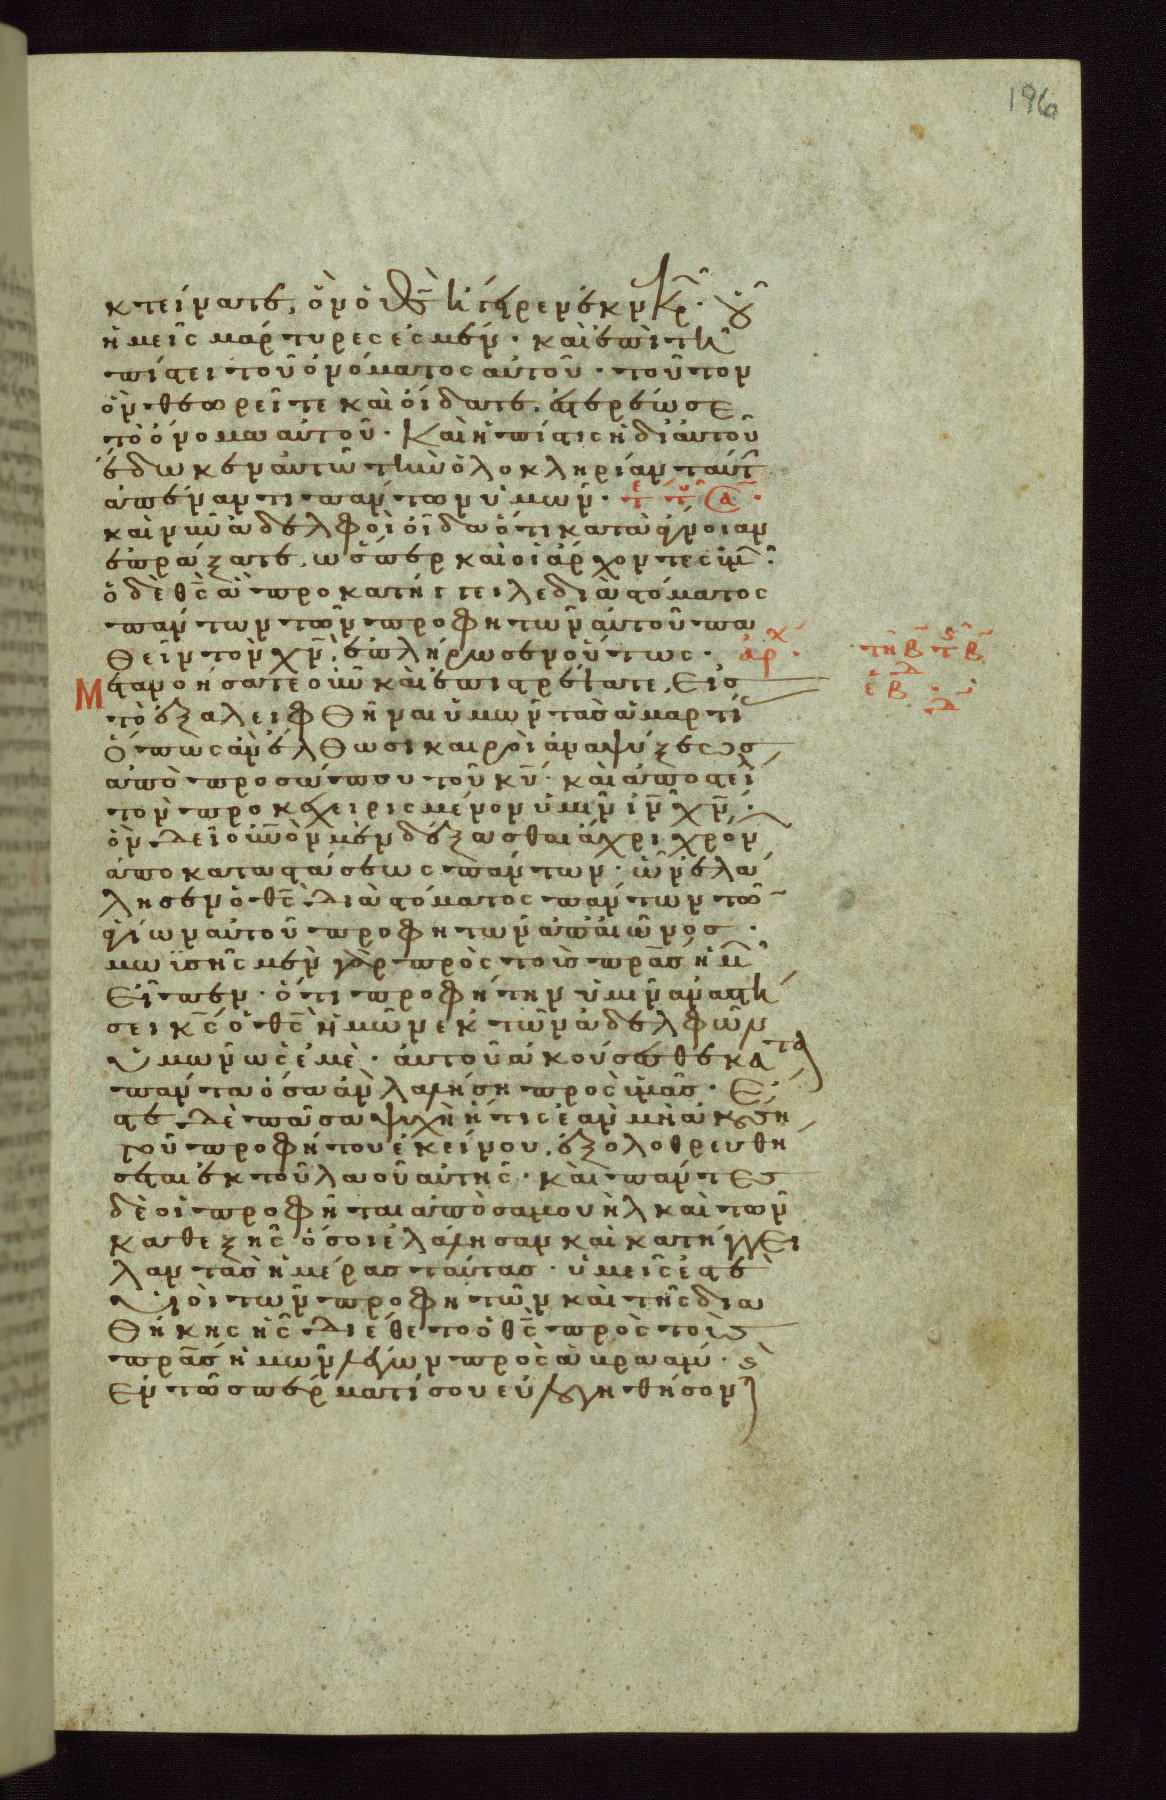 196
κτείνατε, ὃν ὁ θς̅ ἤγειρεν ἐκ νεκρ̅. οὗ
ἡμεῖς μάρτυρες ἐσμέν · καὶ ἐπὶ τῆ
πίστει τοῦ ὀνόματος αὐτοῦ · τοῦτον
ὃν θεωρεῖτε καὶ οἴδατε, ἐστερέωσε
τὸ ὄνομα αὐτοῦ · Καὶ ἡ πίστις ἡ δι αὐτοῦ
ἔδωκεν αὐτῶ τὴν ὁλοκληρίαν ταύτ̅
ἀπέναντι πάντων ὑμῶν · τε τ̅ου α̅ ·
καὶ νῦν ἀδελφοὶ οἶδα ὅτι κατὰ ἄγνοιαν
ἐπράξατε, ὥσπερ καὶ οἱ ἄρχοντες ὑμ̅ :
ὁ δὲ θς̅ ἃ προκατήγγειλε διὰ στόματος
πάντων τῶν προφητῶν αὐτοῦ πα
θεῖν τὸν χν̅, ἐπλήρωσεν οὕτως · ἀρχ ·
τῆ β̅ τ̅ς β̅
ἑβδ
Μετανοήσατε οὖν καὶ ἐπιστρέψατε, Εἰς
τὸ ἐξαλειφθῆναι ὑμῶν τὰς ἁμαρτί
Ὅπως ἂν ἔλθωσι καιροὶ ἀναψύξεως
ἀπὸ προσώπου τοῦ κυ̅ · καὶ ἀποστεί
τὸν προκεχειρισμένον ὑμῖν ιν̅ χν̅ ·
ὃν δεῖ οὐνὸν μὲν δέξασθαι ἄχρι χρόν
ἀποκαταστάσεως πάντων · ὧν ἐλά
λησεν ὁ θς̅ διὰ στόματος πάντων τῶ̅
ἁγίων αὐτοῦ προφητῶν ἀπ' αἰῶνος ·
μωϊσῆς μὲν γὰρ πρὸς τοὺς πρ̅ας ἡμ̅
Εἶπεν · ὅτι προφήτην ὑμῖν ἀναστή
σει κς̅ ὁ θς̅ ἡμῶν ἐκ τῶν ἀδελφῶν
Ὑμῶν ὡς ἐμὲ · αὐτοῦ ἀκούσεσθε κατὰ
πάντα ὅσα ἂν λαλήση πρὸς ὑμᾶς · Ἔ
σται δὲ πᾶσα ψυχὴ ἥτις ἐὰν μὴ ἀκούση
τοῦ προφήτου ἐκείνου, ἐξολοθρευθή
σεται ἐκ τοῦ λαοῦ αὐτῆς · καὶ πάντες
δὲ οἱ προφῆται ἀπὸ σαμουὴλ καὶ τῶν
καθεξῆς ὅσοι ἐλάλησαν καὶ κατήγγει
λαν τὰς ἡμέρας ταύτας · ὑμεῖς ἐστὲ
Υἱοὶ τῶν προφητῶν καὶ τῆς δια
θήκης ἧς διέθετο ὁ θς̅ πρὸς τοὺς
πρ̅ας ἡμῶν λέγων πρὸς ἀβραάμ · καὶ
Ἐν τῶ σπέρματί σου εὐλογηθήσον